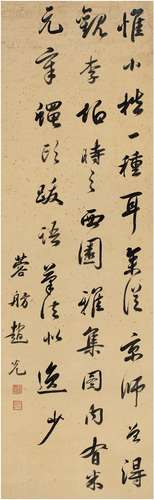 惟小楷一種耳氣從京師曾得
觀李伯時之西園雅集圖內有米
元章禮頌跋語筆法似逸少
蓉舫趙光